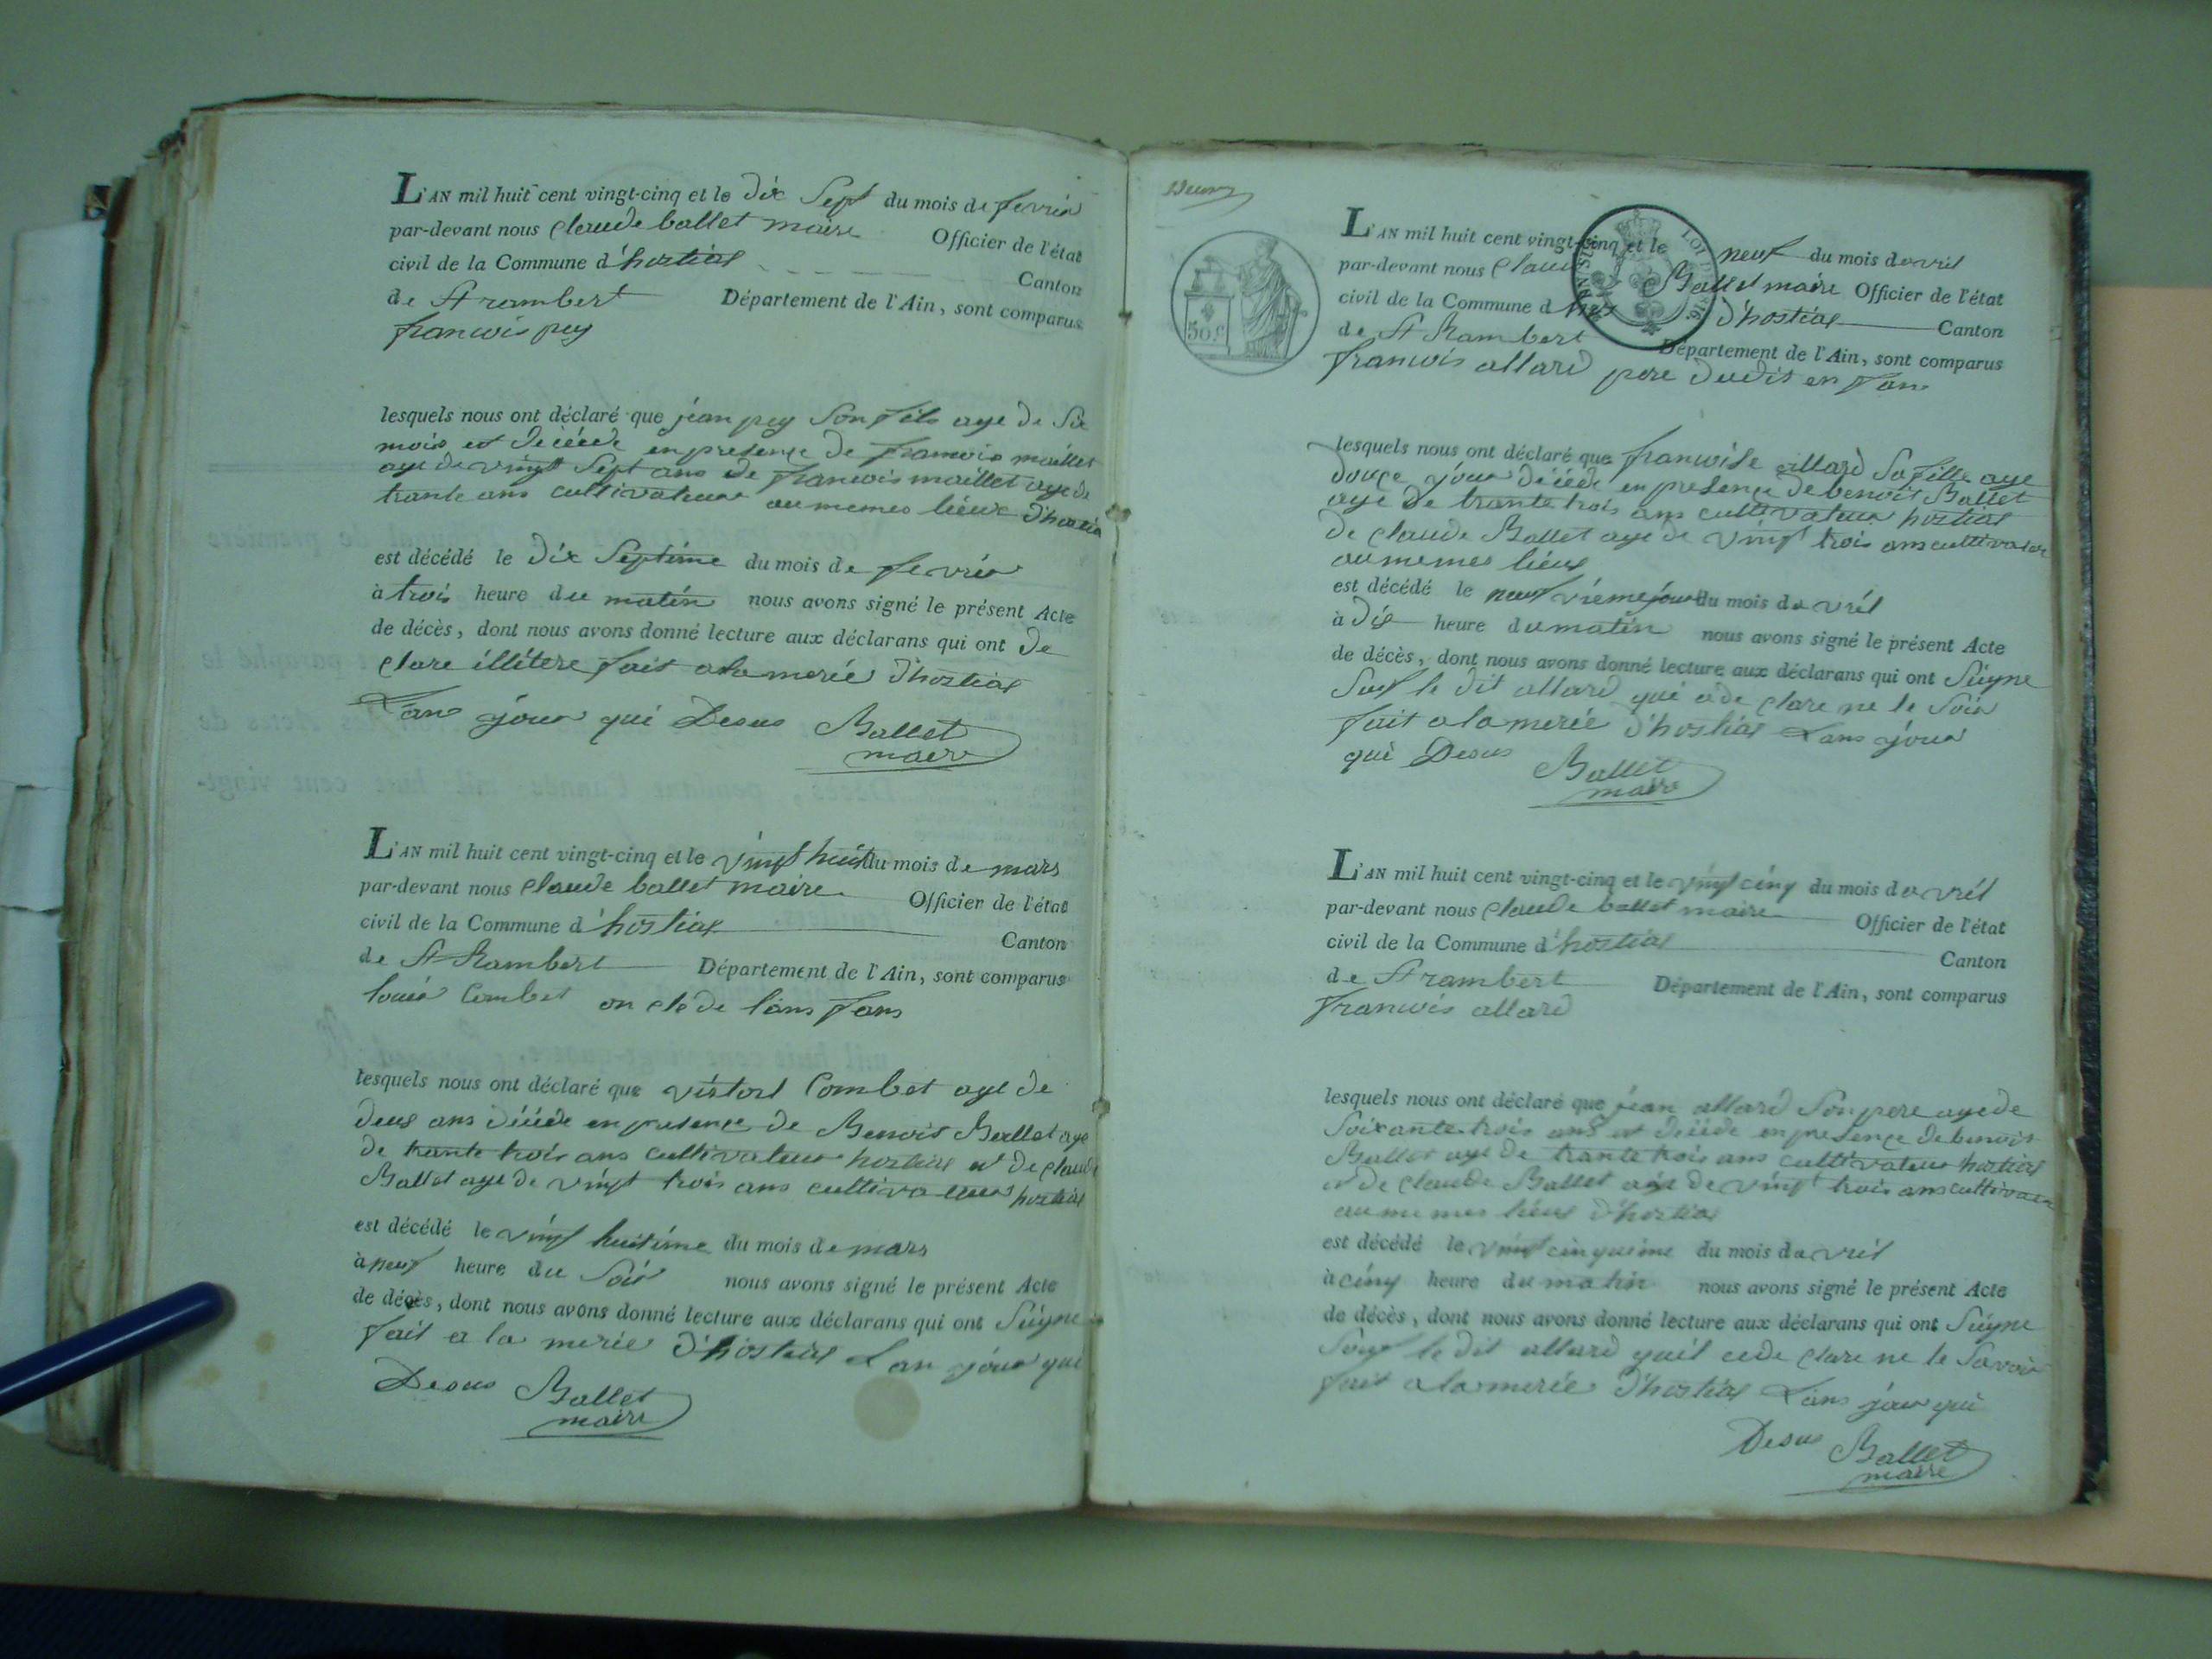 L'AN mil huit cent vingt-cinq et le dix Sept du mois de fevrié
par-devant nous Claude ballet maire Officier de l'état
civil de la Commune d'hostias Canton
de St rambert Département de l'Ain, sont comparus
francois pey
lesquels nous ont déclaré que jean pey Son fils age de Six
mois et décéde en presençe de francois maillet
age de vingt Sept ans de francois maillet age de
trante ans cultivateur au memes lieux d'hostias
est décédé le dix Septiéme du mois de fevrié
à trois heure du matin nous avons signé le présent Acte
de décès, dont nous avons donné lecture aux déclarans qui ont de
clare illétere fait a la merié d'hostias
L'an jour qui Desus Ballet
maire
L'AN mil huit cent vingt-cinq et le vingt huit du mois de mars
par-devant nous Claude ballet maire Officier de l'état
civil de la Commune d'hostias Canton
de St Rambert Département de l'Ain, sont comparus
louis Combet on cle de lans fans
lesquels nous ont déclaré que victort Combet age de
deus ans décéde en presençe de Benois Ballet age
de trante trois ans cultivateur hostias et de claude
Ballet age de vingt trois ans cultivateur hostias
est décédé le vingt huitiéme du mois de mars
à neuf heure du Soir nous avons signé le présent Acte
de décès, dont nous avons donné lecture aux déclarans qui ont Signe
fait a la merie d'hostias L'an jour qui
Desus Ballet
maire
50.c
L'AN mil huit cent vingt-cinq et le neuf du mois davril
par-devant nous Claude Ballet maire Officier de l'état
civil de la Commune d d'hostias Canton
de St Rambert Département de l'Ain, sont comparus
francois allard pere dudit en fans
lesquels nous ont déclaré que francoise allard Sa fille age
douçe jour décéde en presençe de benois Ballet
age de trante trois ans cultivateur hostias
de claude Ballet age de vingt trois ans cultivateur
au memes lieux
est décédé le neuf viéme jour du mois davril
à dix heure du matin nous avons signé le présent Acte
de décès, dont nous avons donné lecture aux déclarans qui ont Signe
Sauf le dit allard qui a de clare ne le Savoir
fait a la merié d'hostias L'ans jour
qui Desus Ballet
maire
L'AN mil huit cent vingt-cinq et le vingt cinq du mois davril
par-devant nous Claude ballet maire Officier de l'état
civil de la Commune d'hostias Canton
de St rambert Département de l'Ain, sont comparus
francois allard
lesquels nous ont déclaré que jean allard Son pere age de
Soixante trois ans et décéde en presençe de benois
Ballet age de trante trois ans cultivateur hostias
et de claude Ballet age de vingt trois ans cultivateur
au memes lieux d'hostias
est décédé le vingt cinquiéme du mois davril
à cinq heure du matin nous avons signé le présent Acte
de décès, dont nous avons donné lecture aux déclarans qui ont Signe
Sauf le dit allard quil a de clare ne le Savoir
fait a la merié d'hostias L'ans jour qui
Desus Ballet
maire